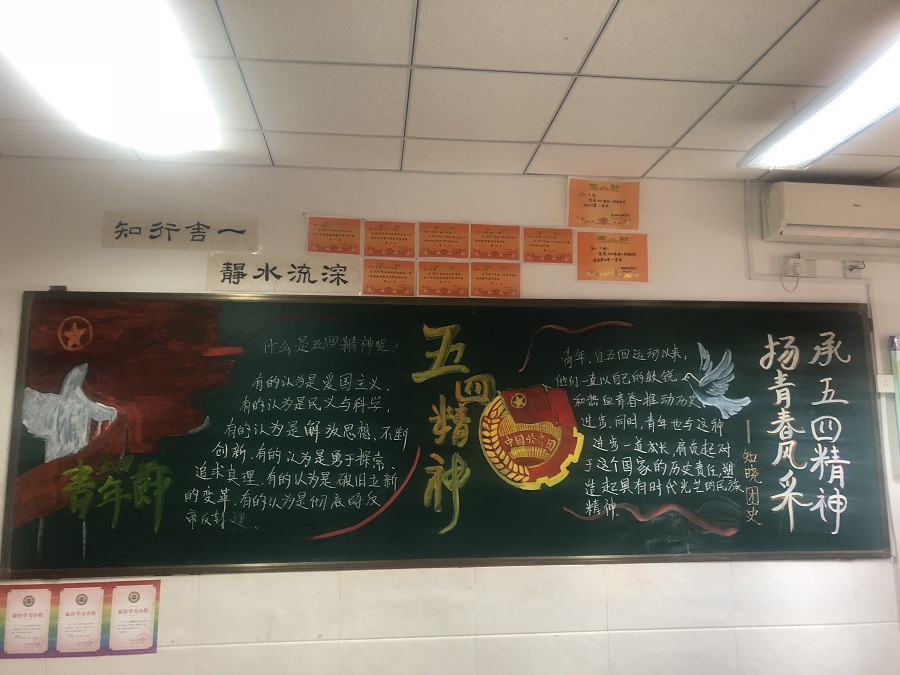 知行合一
靜水流深
青年節
什么是五四精神呢?
有的认为是爱国主义,
有的认为是民主与科学,
有的认为是解放思想、不断
创新,有的认为是勇于探索、
追求真理,有的认为是破旧立新
的变革,有的认为是彻底的反
帝反封建.
五四精神
中国共青团
青年,自五四运动以来,
他们一直以自己的敏锐
和热血青春推动历史
进步.同时,青年也与这种
进步一道成长,肩负起对
于这个国家的历史责任,塑
造起具有时代光芒的民族
精神.
承五四精神
扬青春风采
——知晓团史
最佳学习小组
最佳学习小组
最佳学习小组